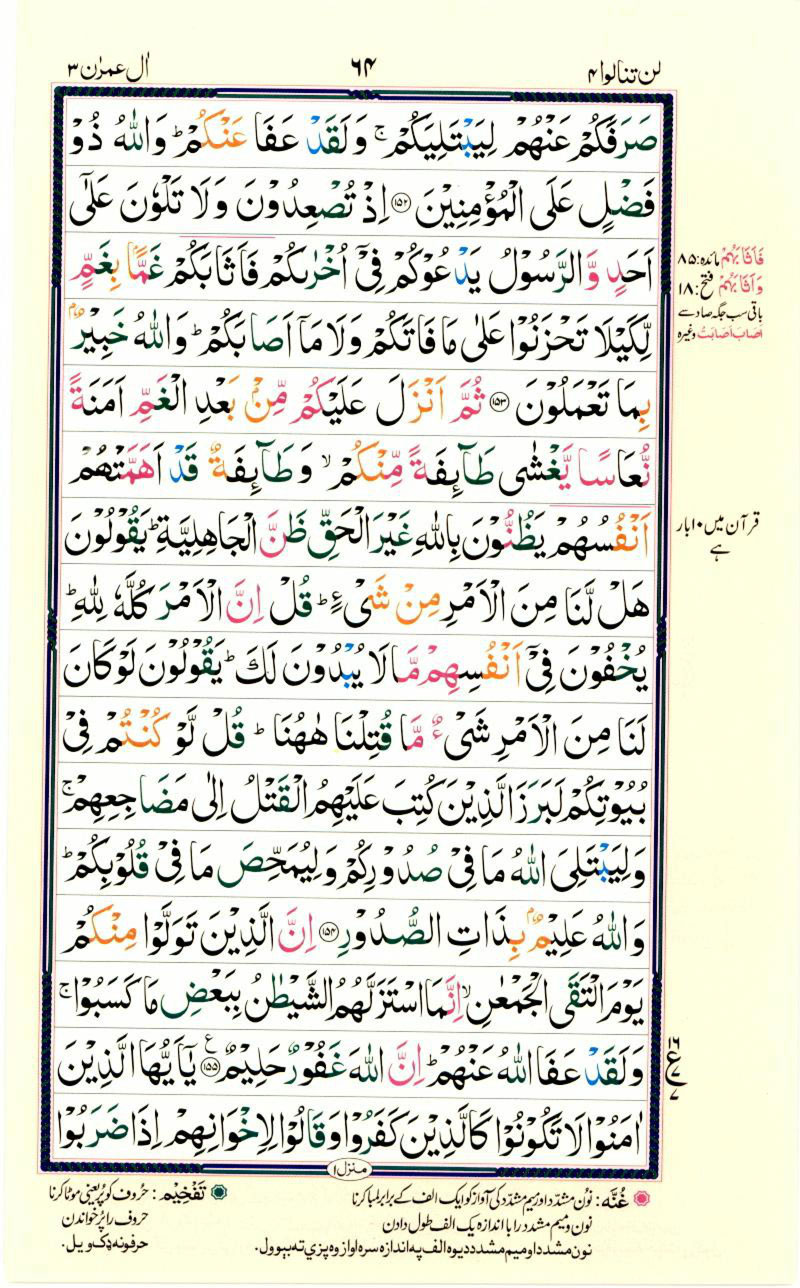 لن تنالوا ۴
۶۴
اٰل عمرٰن ۳
صَرَفَكُمْ عَنْهُمْ لِيَبْتَلِيَكُمْ ۚ وَلَقَدْ عَفَا عَنْكُمْ ؕ وَاللّٰهُ ذُوْ
فَضْلٍ عَلَى الْمُؤْمِنِيْنَ ﴿۱۵۲﴾ اِذْ تُصْعِدُوْنَ وَلَا تَلْوٗنَ عَلٰٓى
اَحَدٍ وَّالرَّسُوْلُ يَدْعُوْكُمْ فِيْٓ اُخْرٰىكُمْ فَاَثَابَكُمْ غَمًّۢا بِغَمٍّ
لِّكَيْلَا تَحْزَنُوْا عَلٰى مَا فَاتَكُمْ وَلَا مَآ اَصَابَكُمْ ؕ وَاللّٰهُ خَبِيْرٌۢ
بِمَا تَعْمَلُوْنَ ﴿۱۵۳﴾ ثُمَّ اَنْزَلَ عَلَيْكُمْ مِّنْۢ بَعْدِ الْغَمِّ اَمَنَةً
نُّعَاسًا يَّغْشٰى طَآئِفَةً مِّنْكُمْ ۙ وَطَآئِفَةٌ قَدْ اَهَمَّتْهُمْ
اَنْفُسُهُمْ يَظُنُّوْنَ بِاللّٰهِ غَيْرَ الْحَقِّ ظَنَّ الْجَاهِلِيَّةِ ؕ يَقُوْلُوْنَ
هَلْ لَّنَا مِنَ الْاَمْرِ مِنْ شَيْءٍ ؕ قُلْ اِنَّ الْاَمْرَ كُلَّهٗ لِلّٰهِ ؕ
يُخْفُوْنَ فِيْٓ اَنْفُسِهِمْ مَّا لَا يُبْدُوْنَ لَكَ ؕ يَقُوْلُوْنَ لَوْ كَانَ
لَنَا مِنَ الْاَمْرِ شَيْءٌ مَّا قُتِلْنَا هٰهُنَا ؕ قُلْ لَّوْ كُنْتُمْ فِيْ
بُيُوْتِكُمْ لَبَرَزَ الَّذِيْنَ كُتِبَ عَلَيْهِمُ الْقَتْلُ اِلٰى مَضَاجِعِهِمْ ۚ
وَلِيَبْتَلِيَ اللّٰهُ مَا فِيْ صُدُوْرِكُمْ وَلِيُمَحِّصَ مَا فِيْ قُلُوْبِكُمْ ؕ
وَاللّٰهُ عَلِيْمٌۢ بِذَاتِ الصُّدُوْرِ ﴿۱۵۴﴾ اِنَّ الَّذِيْنَ تَوَلَّوْا مِنْكُمْ
يَوْمَ الْتَقَى الْجَمْعٰنِ ۙ اِنَّمَا اسْتَزَلَّهُمُ الشَّيْطٰنُ بِبَعْضِ مَا كَسَبُوْا ۚ
وَلَقَدْ عَفَا اللّٰهُ عَنْهُمْ ؕ اِنَّ اللّٰهَ غَفُوْرٌ حَلِيْمٌ ﴿۱۵۵﴾ ع يٰٓاَيُّهَا الَّذِيْنَ
اٰمَنُوْا لَا تَكُوْنُوْا كَالَّذِيْنَ كَفَرُوْا وَقَالُوْا لِاِخْوَانِهِمْ اِذَا ضَرَبُوْا
منزل ۱
فَاَثَابَهُمْ مائدہ: ۸۵
وَاَثَابَهُمْ فتح: ۱۸
باقی سب جگہ صاد سے
اَصَابَ اَصَابَتْ وغیرہ
قرآن میں ۱۰ بار
ہے
۱۶
ع
۷
۷
غُنَّه: نون مشدد اور میم مشدد کی آواز کو ایک الف کے برابر لمبا کرنا
نون و میم مشدد را با اندازه یک الف طول دادن
نون مشدد او میم مشدد د یوه الف په اندازه سره اواز وه پزي ته بېوول.
تَفْخِيْم: حروف کو پُر یعنی موٹا کرنا
حروف را پُر خواندن
حرفونه ډک ویل.